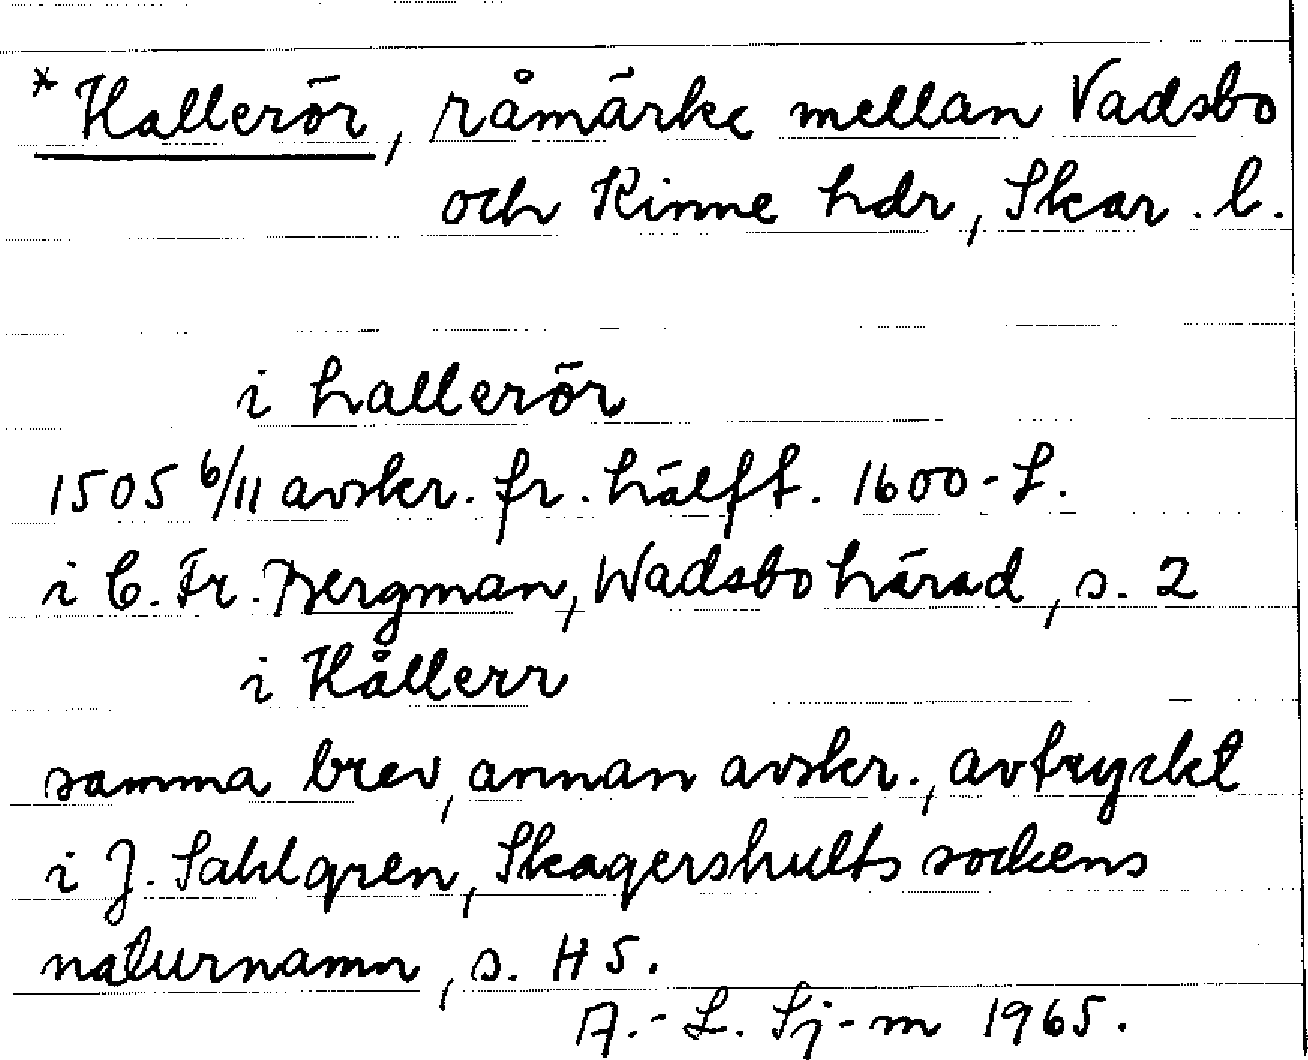 *Hallerör, råmärke mellan Vadsbo
och Kinne hdr, Skar. l.
i hallerör
1505 6/11 avskr. fr. hälft. 1600-t.
i C. Fr. Bergman, Wadsbo härad, s. 2
i Hållerr
samma brev, annan avskr., avtryckt
i J. Sahlgren, Skagershults sockens
naturnamn, s. 45.
A.-L. Sj-m 1965.